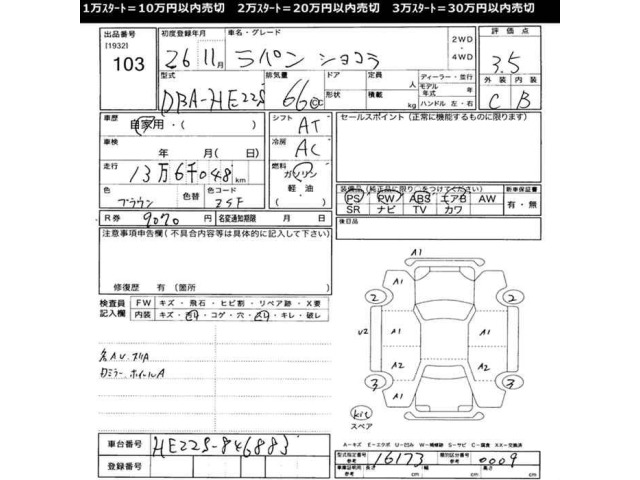 1万スタート＝10万円以内売切　2万スタート＝20万円以内売切　3万スタート＝30万円以内売切
出品番号
[1932]
103
初度登録年月
26年11月
車名・グレード
ラパン ショコラ
2WD
・
4WD
評価点
3.5
外装 内装
C B
型式
DBA-HE22S
排気量
66 cc
ドア
形状
定員 人
積載 kg
ディーラー・並行
モデル年式 年
ハンドル 左・右
車歴
自家用・( )
車検
年 月 (日)
走行
13万6千048 km
色
ブラウン
色替
色コード
ZSF
R券 9070 円
名変通知期限 月 日
シフト
AT
冷房
AC
燃料
ガソリン
軽油
( )
セールスポイント (正常に機能するものに限ります)
装備品 (純正品に限り○をつけてください)
PS PW ABS エアB AW
SR ナビ TV カワ
新車保証書
有・無
後日品
注意事項申告欄 (不具合内容等は具体的に記入して下さい)
修復歴 有 (箇所 )
検査員記入欄
FW キズ・飛石・ヒビ割・リペア跡・X要
内装 キズ・汚れ・コゲ・穴・凹み・キレ・破レ
各AU、スリA
ホイールA
A1
2 A1 A1 2
U2 A1
A2 A2
3 3
A1
kit
スペア
A－キズ E－エクボ U－凹み W－補修跡 S－サビ C－腐食 XX－交換済
車台番号 HE22S-846883
登録番号
型式指定番号 参考 16173
類別区分番号 参考 0009
車庫証明用 参考 長さ cm 幅 cm 高さ cm